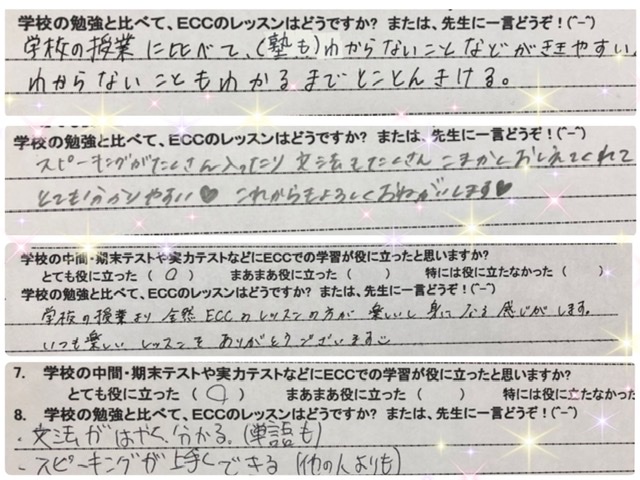 学校の勉強と比べて、ECCのレッスンはどうですか? または、先生に一言どうぞ!(^-^)
学校の授業に比べて、(塾も)わからないことなどがききやすい。
わからないこともわかるまでとことんきける。
学校の勉強と比べて、ECCのレッスンはどうですか? または、先生に一言どうぞ!(^-^)
スピーキングがたくさん入ったり 文法もたくさん こまかくおしえてくれて
とても分かりやすい♥ これからもよろしくおねがいします♥
学校の中間・期末テストや実力テストなどにECCでの学習が役に立ったと思いますか?
とても役に立った ( ○ ) まあまあ役に立った ( ) 特には役に立たなかった ( )
学校の勉強と比べて、ECCのレッスンはどうですか? または、先生に一言どうぞ!(^-^)
学校の授業より 全然 ECCのレッスンの方が 楽しいし 身になる 感じがします。
いつも楽しい レッスンを ありがとうございます☺
7. 学校の中間・期末テストや実力テストなどにECCでの学習が役に立ったと思いますか?
とても役に立った ( ○ ) まあまあ役に立った ( ) 特には役に立たなかった
8. 学校の勉強と比べて、ECCのレッスンはどうですか? または、先生に一言どうぞ!(^-^)
・文法がはやく分かる。(単語も)
・スピーキングが上手くできる (他の人よりも)